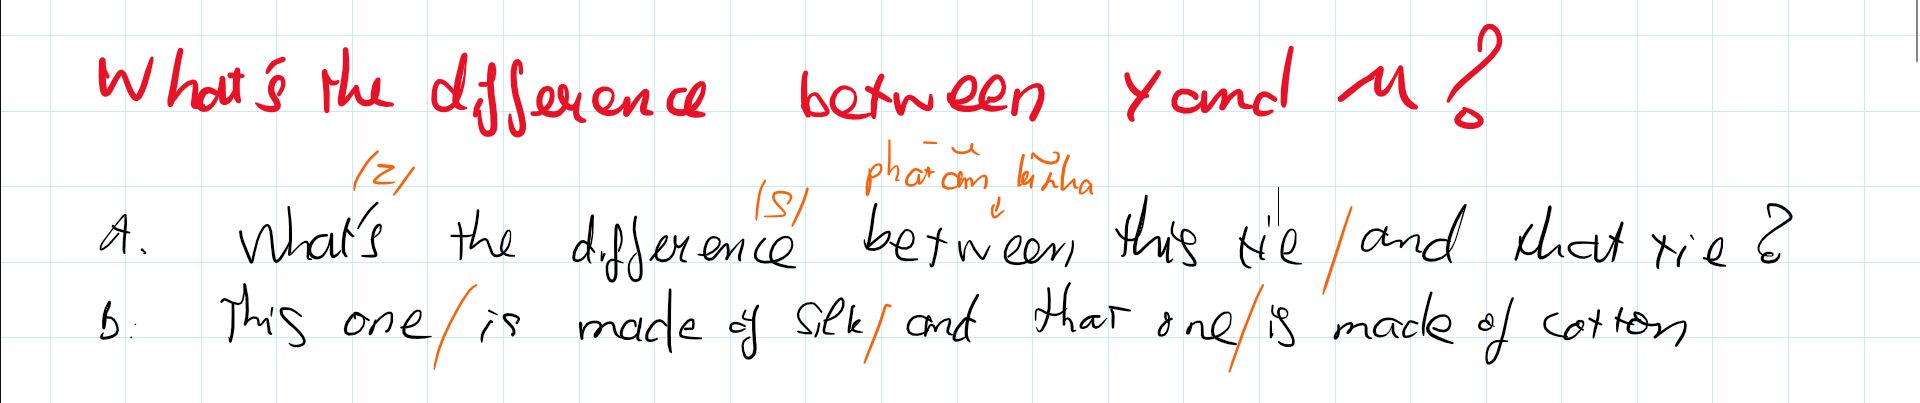 What's the difference between Y and M?
/z/ /s/ phát âm
A. What's the difference between this tie / and that tie?
B: This one / is made of silk / and that one / is made of cotton